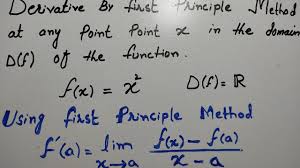 Derivative By first Principle Method
at any Point Point x in the domain
D(f) of the function.
f(x) = x² D(f) = ℝ
Using first Principle Method
f'(a) = lim x→a f(x) - f(a) / x - a